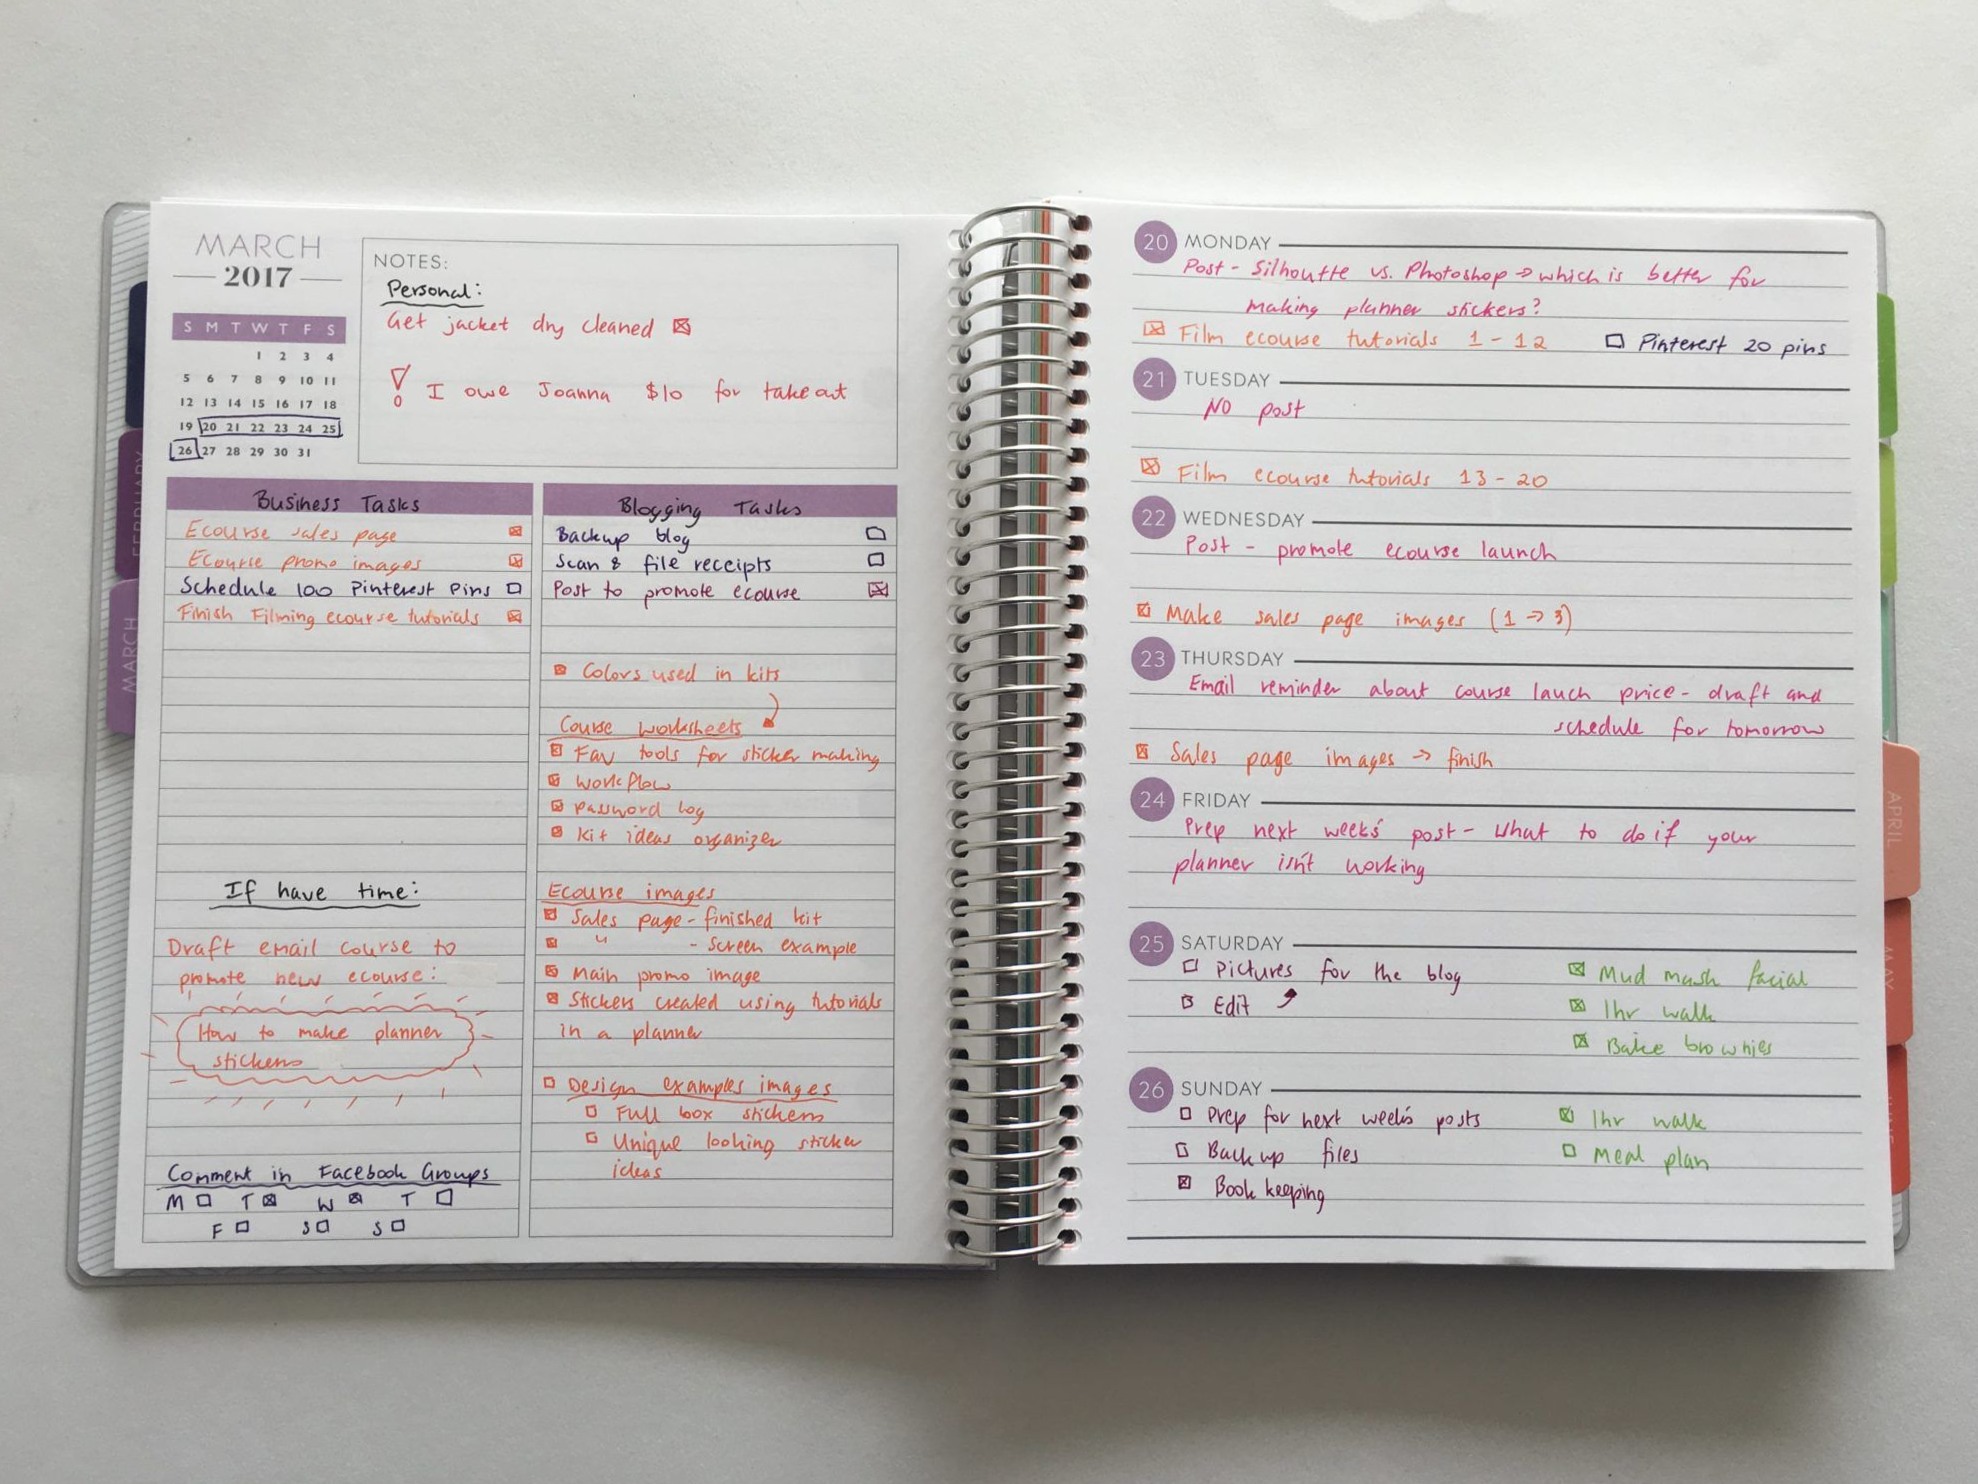 MARCH
2017
S M T W T F S
1 2 3 4
5 6 7 8 9 10 11
12 13 14 15 16 17 18
19 20 21 22 23 24 25
26 27 28 29 30 31
NOTES:
Personal:
Get jacket dry cleaned
! I owe Joanna $10 for take out
Business Tasks
Ecourse sales page
Ecourse promo images
Schedule 100 Pinterest Pins
Finish Filming ecourse tutorials
If have time:
Draft email course to
promote new ecourse:
How to make planner
stickers
Comment in Facebook Groups
M T W T
F S S
Blogging Tasks
Backup blog
Scan & file receipts
Post to promote ecourse
Colors used in kits
Course worksheets
Fav tools for sticker making
Workflow
Password log
Kit ideas organizer
Ecourse images
Sales page - finished kit
" - Screen example
Main promo image
Stickers created using tutorials
in a planner
Design examples images
Full box stickers
Unique looking sticker
ideas
FEBRUARY
MARCH
20 MONDAY
Post - Silhoutte vs. Photoshop → which is better for
making planner stickers?
Film ecourse tutorials 1 - 12 Pinterest 20 pins
21 TUESDAY
NO post
Film ecourse tutorials 13 - 20
22 WEDNESDAY
Post - promote ecourse launch
Make sales page images (1 → 3)
23 THURSDAY
Email reminder about course lauch price - draft and
schedule for tomorrow
Sales page images → finish
24 FRIDAY
Prep next week's post - What to do if your
planner isn't working
25 SATURDAY
Pictures for the blog Mud mask facial
Edit 1hr walk
Bake brownies
26 SUNDAY
Prep for next week's posts 1hr walk
Backup files Meal plan
Book keeping
APRIL
MAY
JUNE